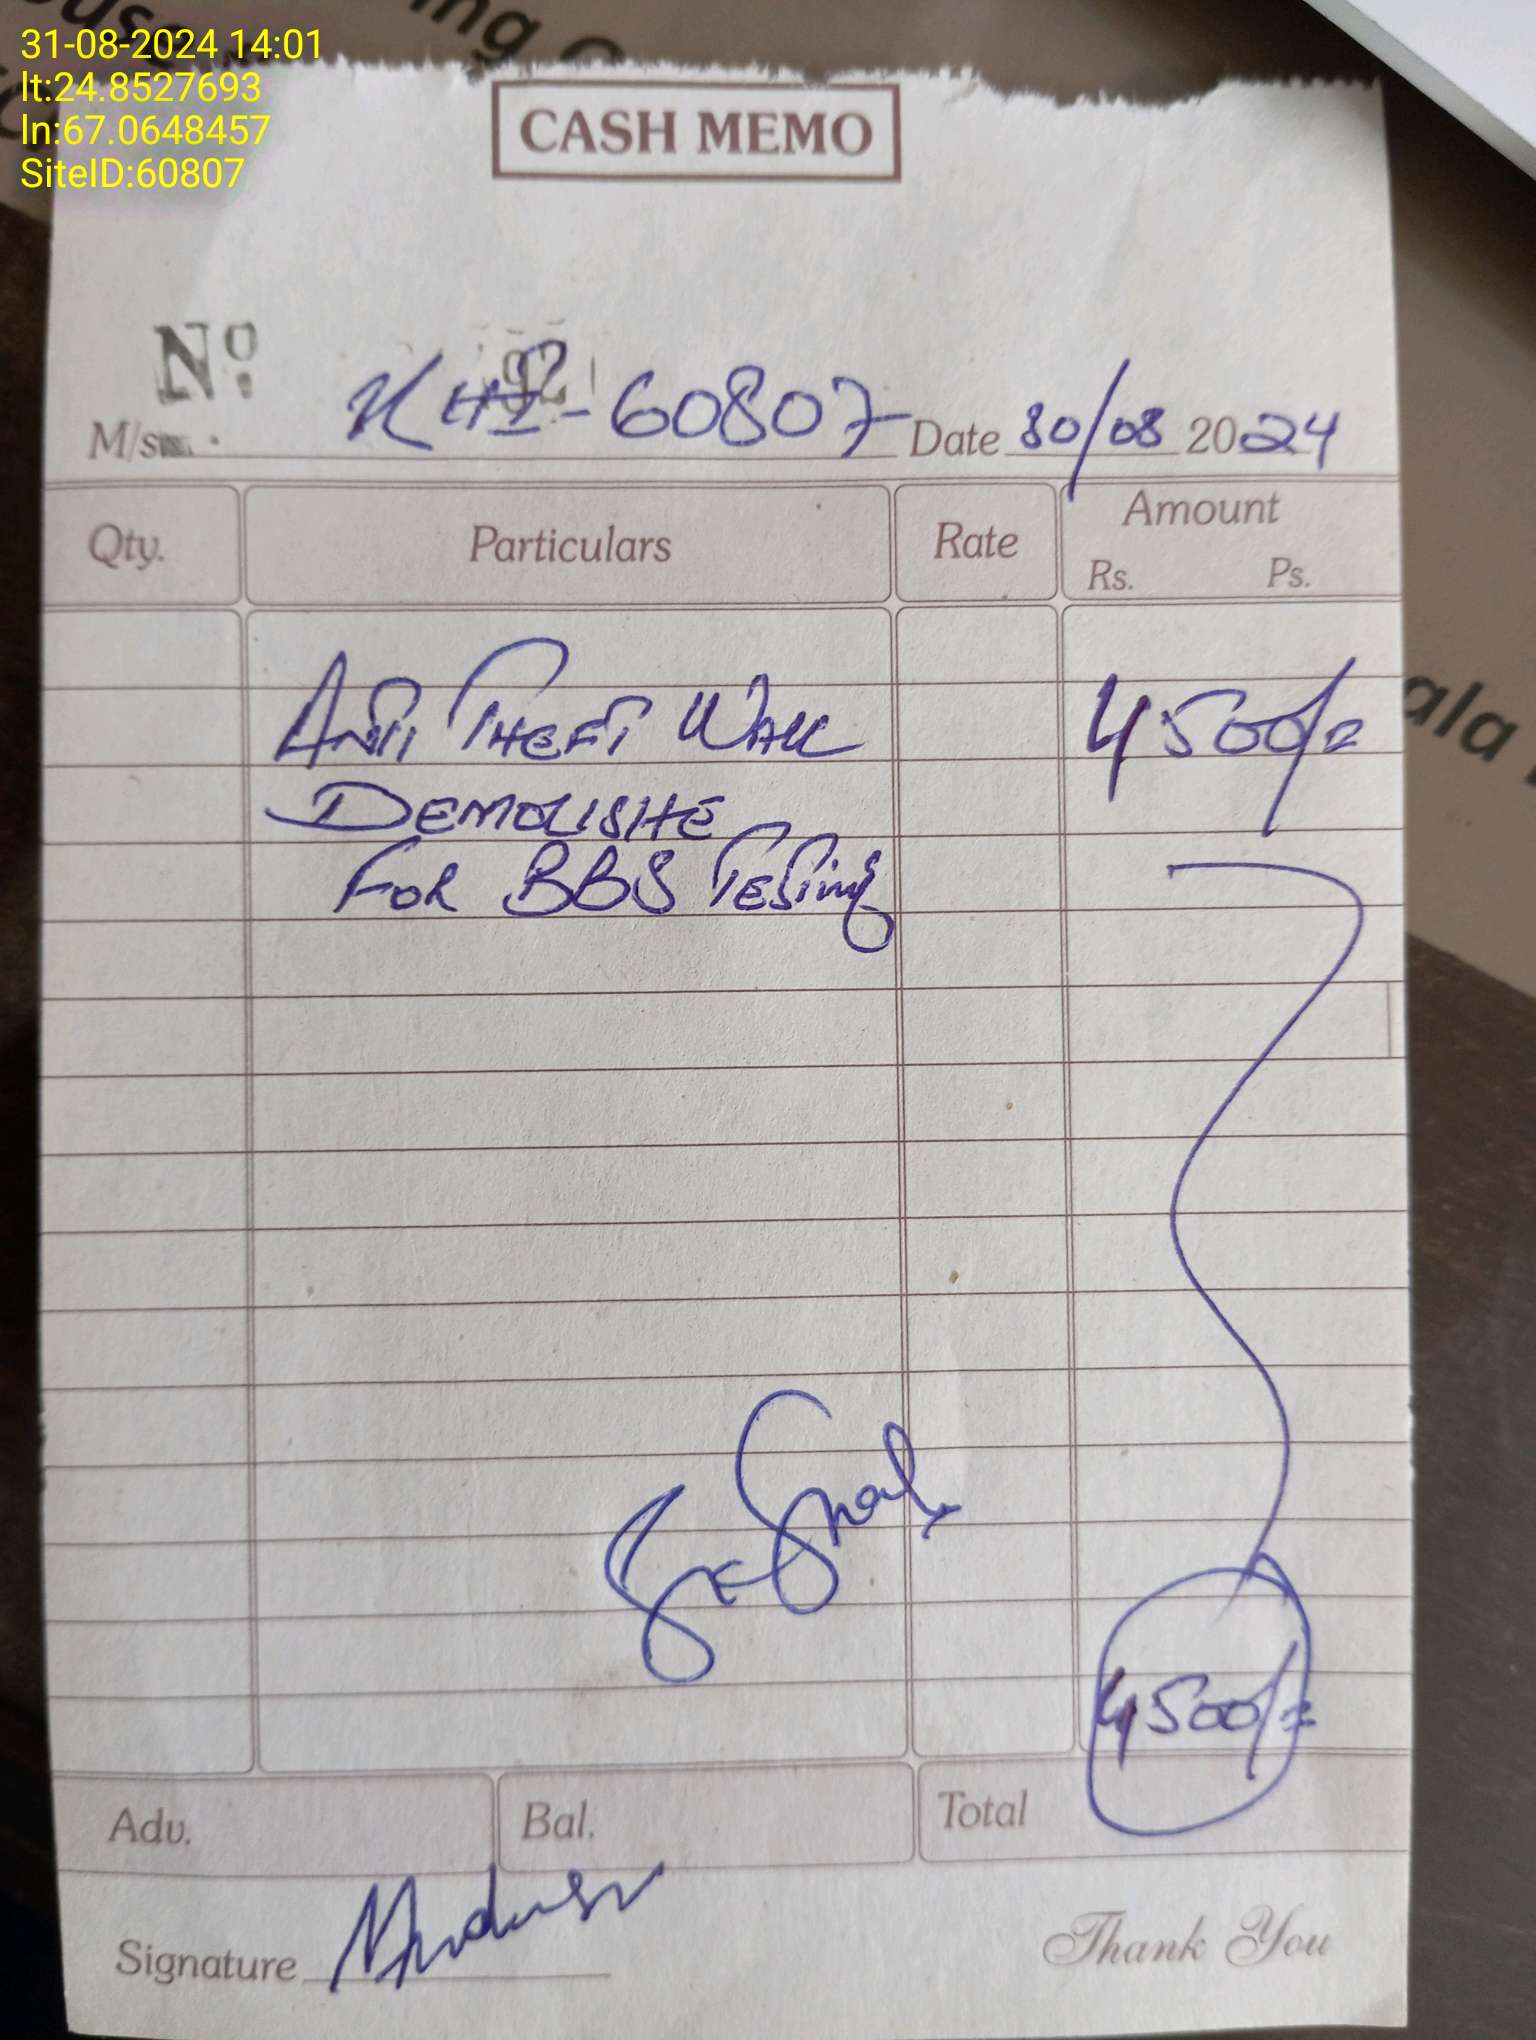 31-08-2024 14:01
lt:24.8527693
ln:67.0648457
SiteID:60807
CASH MEMO
No.
M/s. KHI-60807 Date 30/08 2024
Qty. Particulars Rate Amount
Rs. Ps.
ANTI THEFT WALL 4500/=
DEMOLISHE
FOR BBS TESTING
4500/=
Adv. Bal. Total
Signature
Thank You